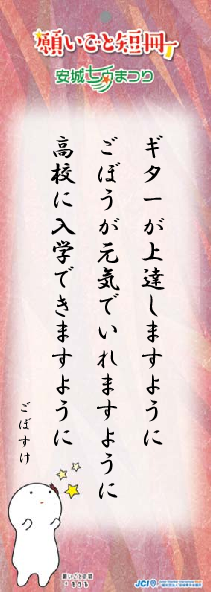 願いごと短冊
安城七夕まつり
ギターが上達しますように
ごぼうが元気でいれますように
高校に入学できますように
ごぼすけ
JCI